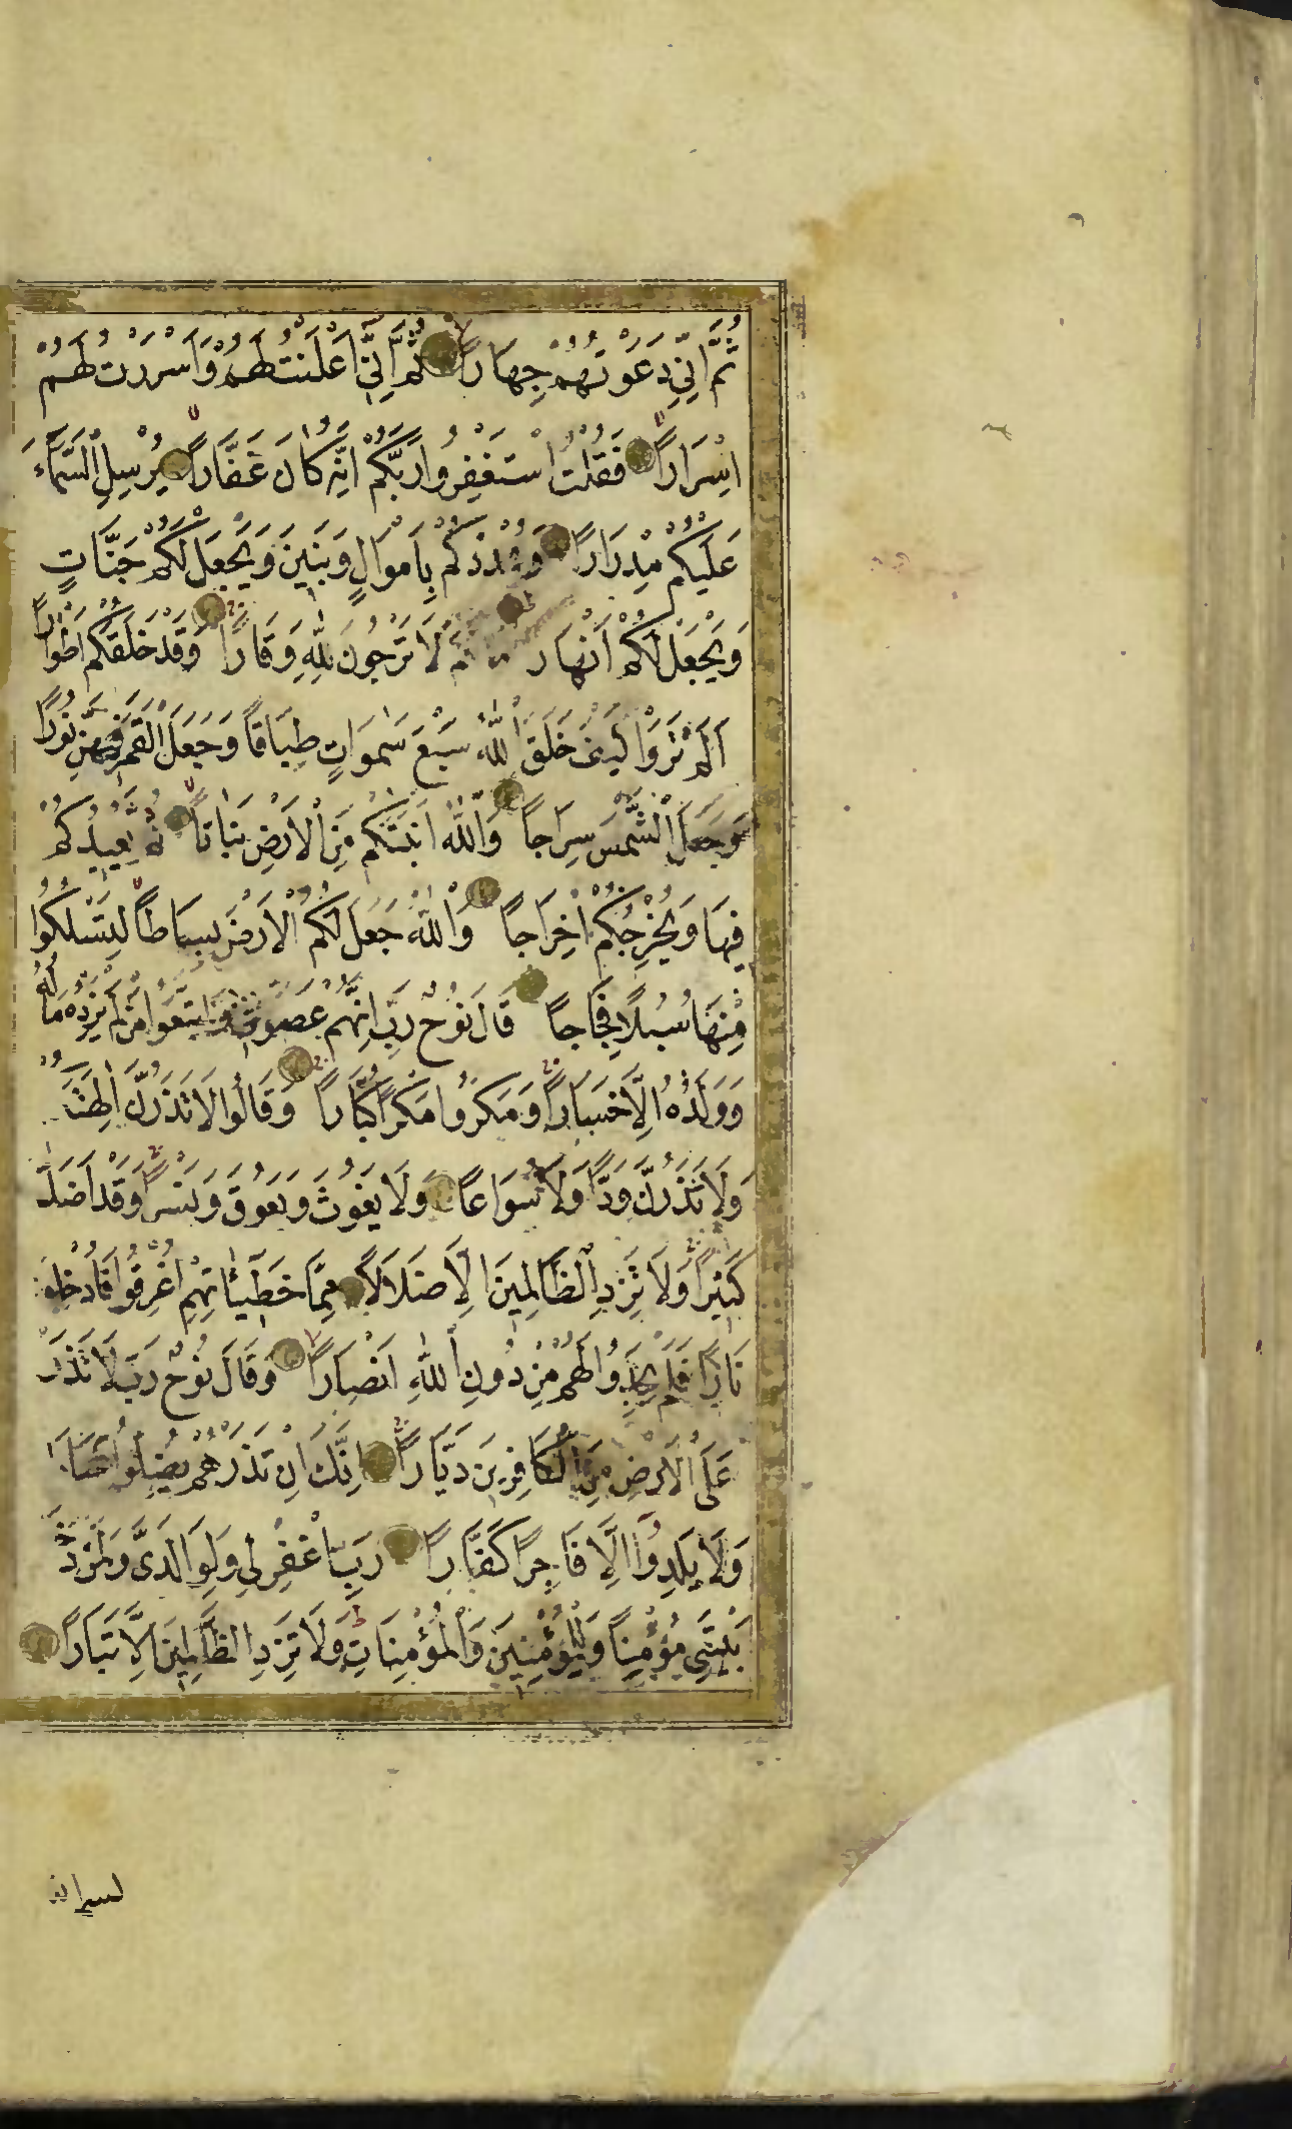 ثُمَّ اِنِّي دَعَوْتُهُمْ جِهَارًا ثُمَّ اِنِّي اَعْلَنْتُ لَهُمْ وَاَسْرَرْتُ لَهُمْ
اِسْرَارًا فَقُلْتُ اسْتَغْفِرُوا رَبَّكُمْ اِنَّهُ كَانَ غَفَّارًا يُرْسِلِ السَّمَاءَ
عَلَيْكُمْ مِدْرَارًا وَيُمْدِدْكُمْ بِاَمْوَالٍ وَبَنِينَ وَيَجْعَلْ لَكُمْ جَنَّاتٍ
وَيَجْعَلْ لَكُمْ اَنْهَار لَا تَرْجُونَ لِلّٰهِ وَقَارًا وَقَدْ خَلَقَكُمْ اَطْوَارًا
اَلَمْ تَرَوْا كَيْفَ خَلَقَ اللّٰهُ سَبْعَ سَمٰوَاتٍ طِبَاقًا وَجَعَلَ الْقَمَرَ فِيهِنَّ نُورًا
وَجَعَلَ الشَّمْسَ سِرَاجًا وَاللّٰهُ اَنْبَتَكُمْ مِنَ الْاَرْضِ نَبَاتًا ثُمَّ يُعِيدُكُمْ
فِيهَا وَيُخْرِجُكُمْ اِخْرَاجًا وَاللّٰهُ جَعَلَ لَكُمُ الْاَرْضَ بِسَاطًا لِتَسْلُكُوا
مِنْهَا سُبُلًا فِجَاجًا قَالَ نُوحٌ رَبِّ اِنَّهُمْ عَصَوْنِي وَاتَّبَعُوا مَنْ لَمْ يَزِدْهُ مَالُهُ
وَوَلَدُهُ اِلَّا خَسَارًا وَمَكَرُوا مَكْرًا كُبَّارًا وَقَالُوا لَا تَذَرُنَّ اٰلِهَتَ
وَلَا تَذَرُنَّ وَدًّا وَلَا سُوَاعًا وَلَا يَغُوثَ وَيَعُوقَ وَنَسْرًا وَقَدْ اَضَلُّ
كَثِيرًا وَلَا تَزِدِ الظَّالِمِينَ اِلَّا ضَلَالًا مِمَّا خَطِٓيـَٔاتِهِمْ اُغْرِقُوا فَاُدْخِلُو
نَارًا فَلَمْ يَجِدُوا لَهُمْ مِنْ دُونِ اللّٰهِ اَنْصَارًا وَقَالَ نُوحٌ رَبِّ لَا تَذَرْ
عَلَى الْاَرْضِ مِنَ الْكَافِرِينَ دَيَّارًا اِنَّكَ اِنْ تَذَرْهُمْ يُضِلُّوا عِبَا
وَلَا يَلِدُوٓا اِلَّا فَاجِرًا كَفَّارًا رَبِّ اغْفِرْ لِي وَلِوَالِدَيَّ وَلِمَنْ دَخَ
بَيْتِيَ مُؤْمِنًا وَلِلْمُؤْمِنِينَ وَالْمُؤْمِنَاتِ وَلَا تَزِدِ الظَّالِمِينَ اِلَّا تَبَارًا